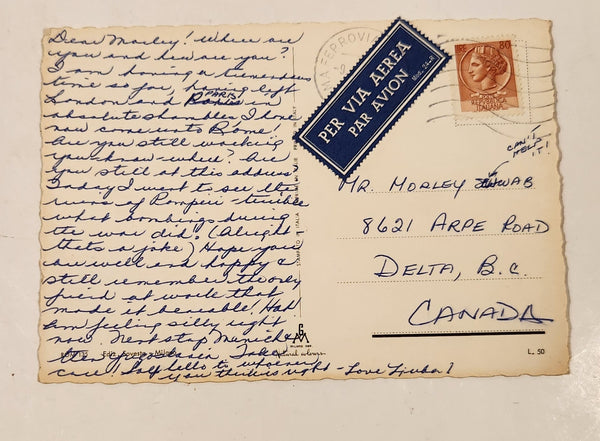 Dear Morley! Where are
you and how are you?
I am having a tremendous
time so you, having left
London and PARIS in
absolute shambles I have
now come unto Rome!
Are you still working
you know-where? Are
you still at this address
Today I went to see the
ruins of Pompeii - terrible
what bombings during
the war did! (Alright
thats a joke) Hope you
are well and happy &
still remember the only
friend at work that
made it bearable. Ha!
Am feeling silly right
now. Next stop Munich &
then Take
care! Say hello to whoever
you think is right - Love Ljuba!
PER VIA AEREA
PAR AVION
Mod. 24-R
FERROVIA
80
REPUBBLICA
ITALIANA
CAN'T
HELP
IT!
MR. MORLEY
8621 ARPE ROAD
DELTA, B.C.
CANADA
Milano
L. 50